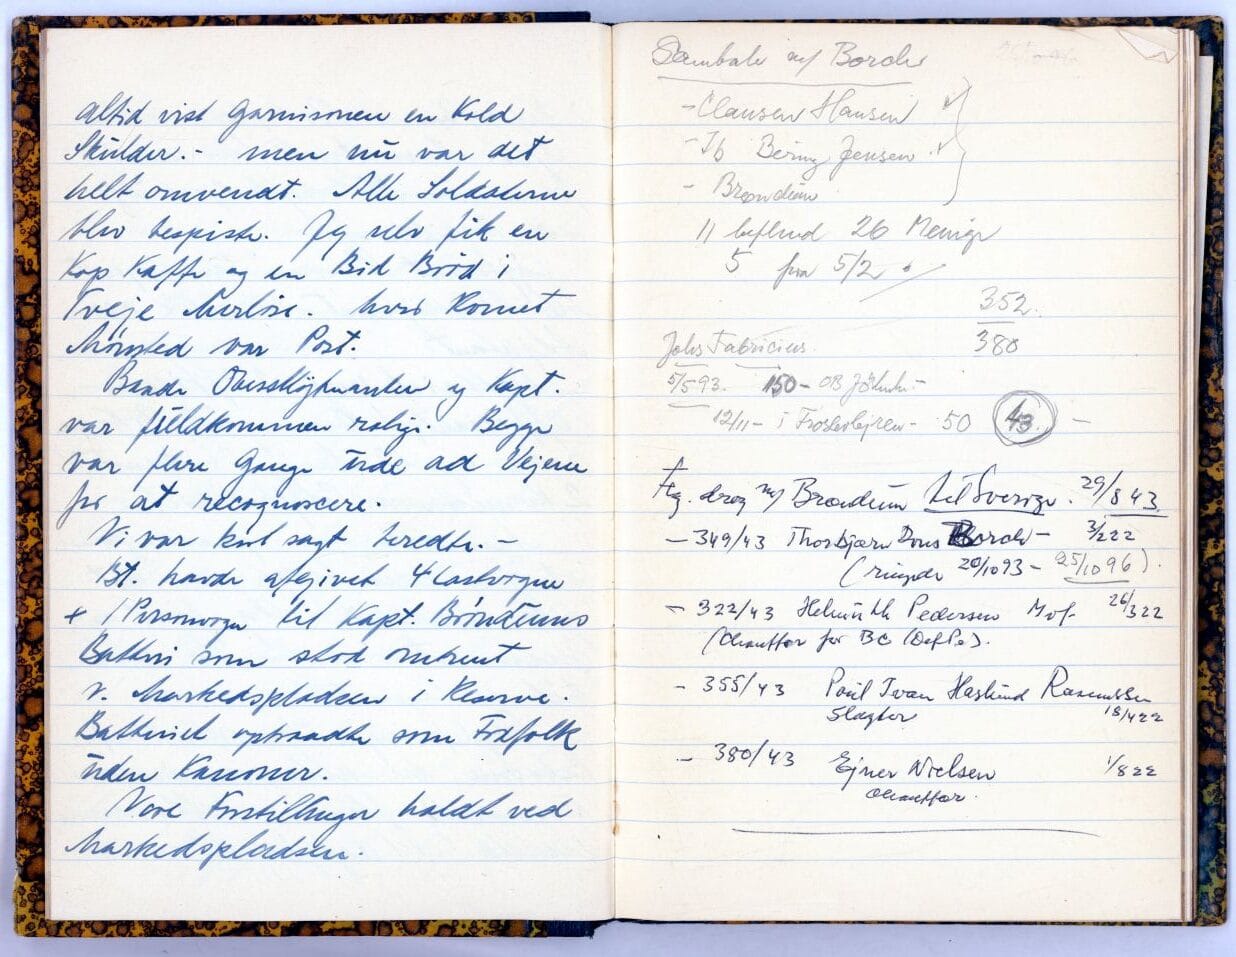 altid vist Garnisonen en Kold
Skulder.- men nu var det
helt omvendt. Alle Soldaterne
blev bespist. Jeg selv fik en
Kop Kaffe og en Bid Brød i
Tveje Merløse. hvor Kornet
Mønsted var Post.
Baade Oberstløjtnanten og Kapt.
var fuldkommen rolige. Begge
var flere Gange ude ad Vejene
for at recognoscere.
Vi var kort sagt beredte.-
Bt. havde afgivet 4 Lastvogne
+ 1 Personvogn til Kapt. Brøndums
Batteri som stod omtrent
v. Markedspladsen i Reserve.
Batteriet optraadte som Fodfolk
uden Kanoner.
Vore Forstillinger holdt ved
Markedspladsen.
Samtale m/ Borch
- Clausen Hansen
- Ib Bering Jensen
- Brøndum
11 befmd 26 Menige
5 fra 5/2
352.
380
Johs Fabricius.
5/5 93. 150-
12/11- i Frøslevlejren- 50 43. -
drog m/ Brøndum til Sverige. 29/8 43
- 349/43 Thorbjørn Borch - 3/2 22
(ringede 20/10 93 - 25/10 96).
- 322/43 Helmuth Pedersen 26/3 22
(Chauffør for BC
- 355/43 Poul Ivan Haslund Rasmussen
Slagter 18/4 22
- 380/43 Ejner Nielsen 1/8 22
Chauffør.